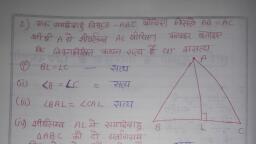 2) एक समद्विबाहु त्रिभुज ABC खींचिए जिसमें AB = AC
शीर्ष A से शीर्षलम्ब AL खींचिए
कि निम्नलिखित कथन सत्य है या असत्य
(i) BL = LC — सत्य
(ii) ∠B = ∠C = सत्य
(iii) ∠BAL = ∠CAL सत्य
(iv) शीर्षलम्ब AL ने समद्विबाहु
△ABC को दो सर्वांगसम
A
B L C